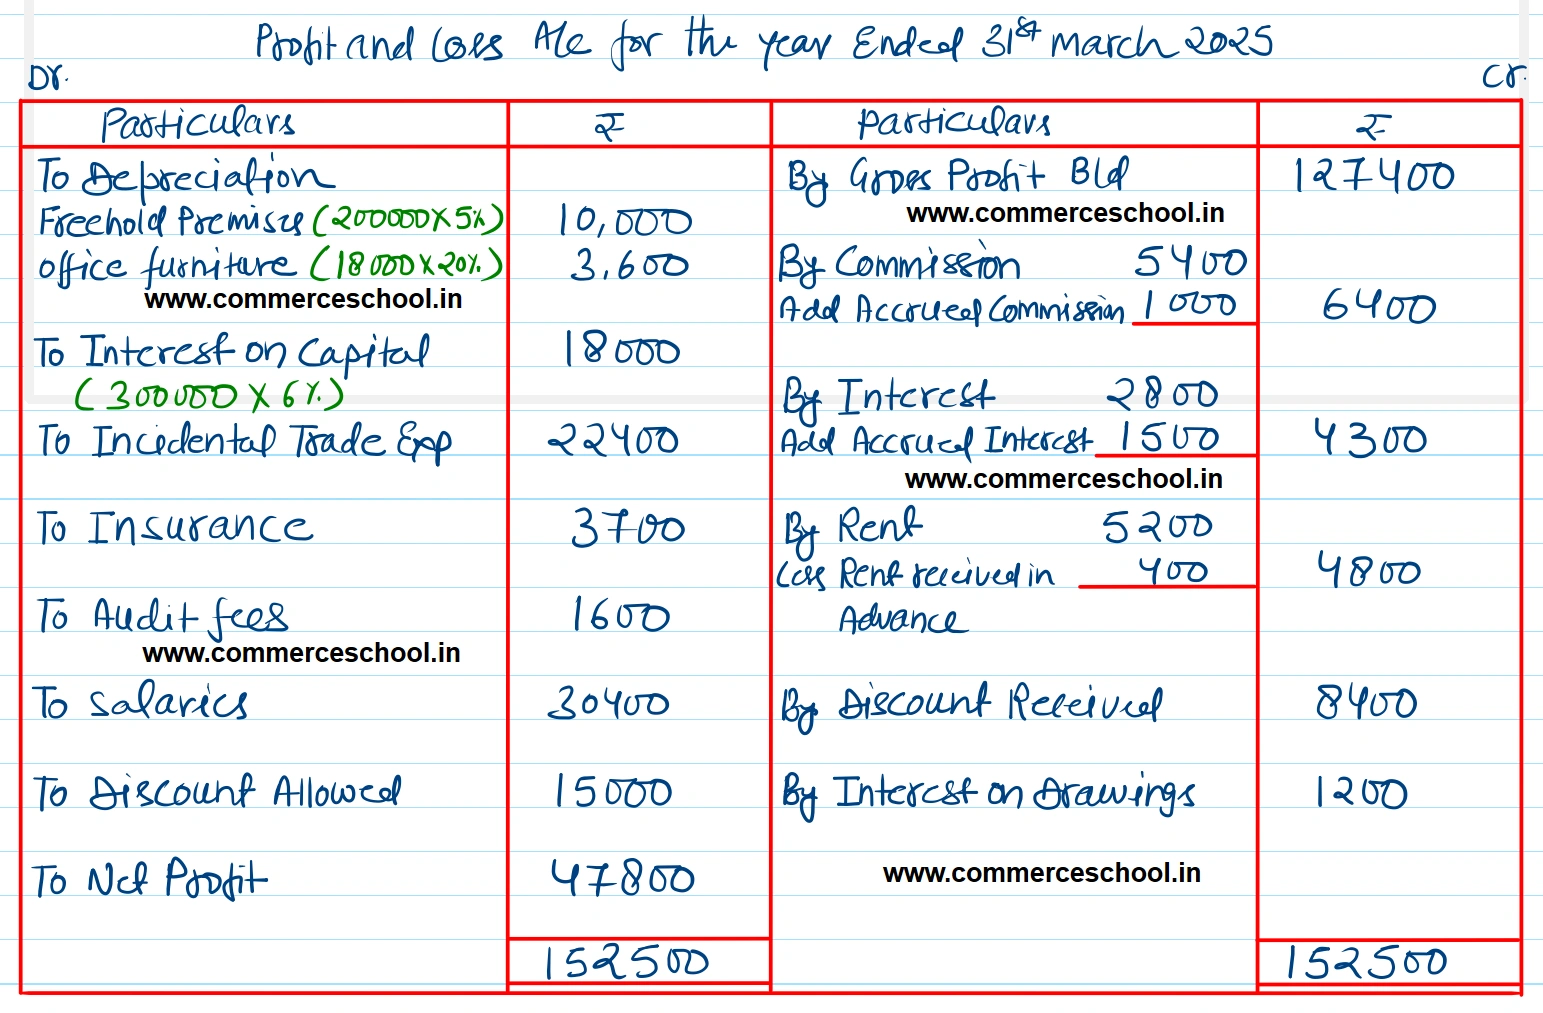 Profit and Loss A/c for the year Ended 31st March 2025
Dr. Cr.
Particulars ₹ Particulars ₹
To Depreciation By Gross Profit B/d 127400
Freehold Premises (200000 X 5%) 10,000 www.commerceschool.in
office furniture (18000 X 20%) 3,600 By Commission 5400
www.commerceschool.in Add Accrued Commission 1000 6400
To Interest on Capital 18000
(300000 X 6%) By Interest 2800
To Incidental Trade Exp 22400 Add Accrued Interest 1500 4300
www.commerceschool.in
To Insurance 3700 By Rent 5200
Less Rent received in 400 4800
To Audit fees 1600 Advance
www.commerceschool.in
To Salaries 30400 By Discount Received 8400
To Discount Allowed 15000 By Interest on Drawings 1200
To Net Profit 47800 www.commerceschool.in
152500 152500